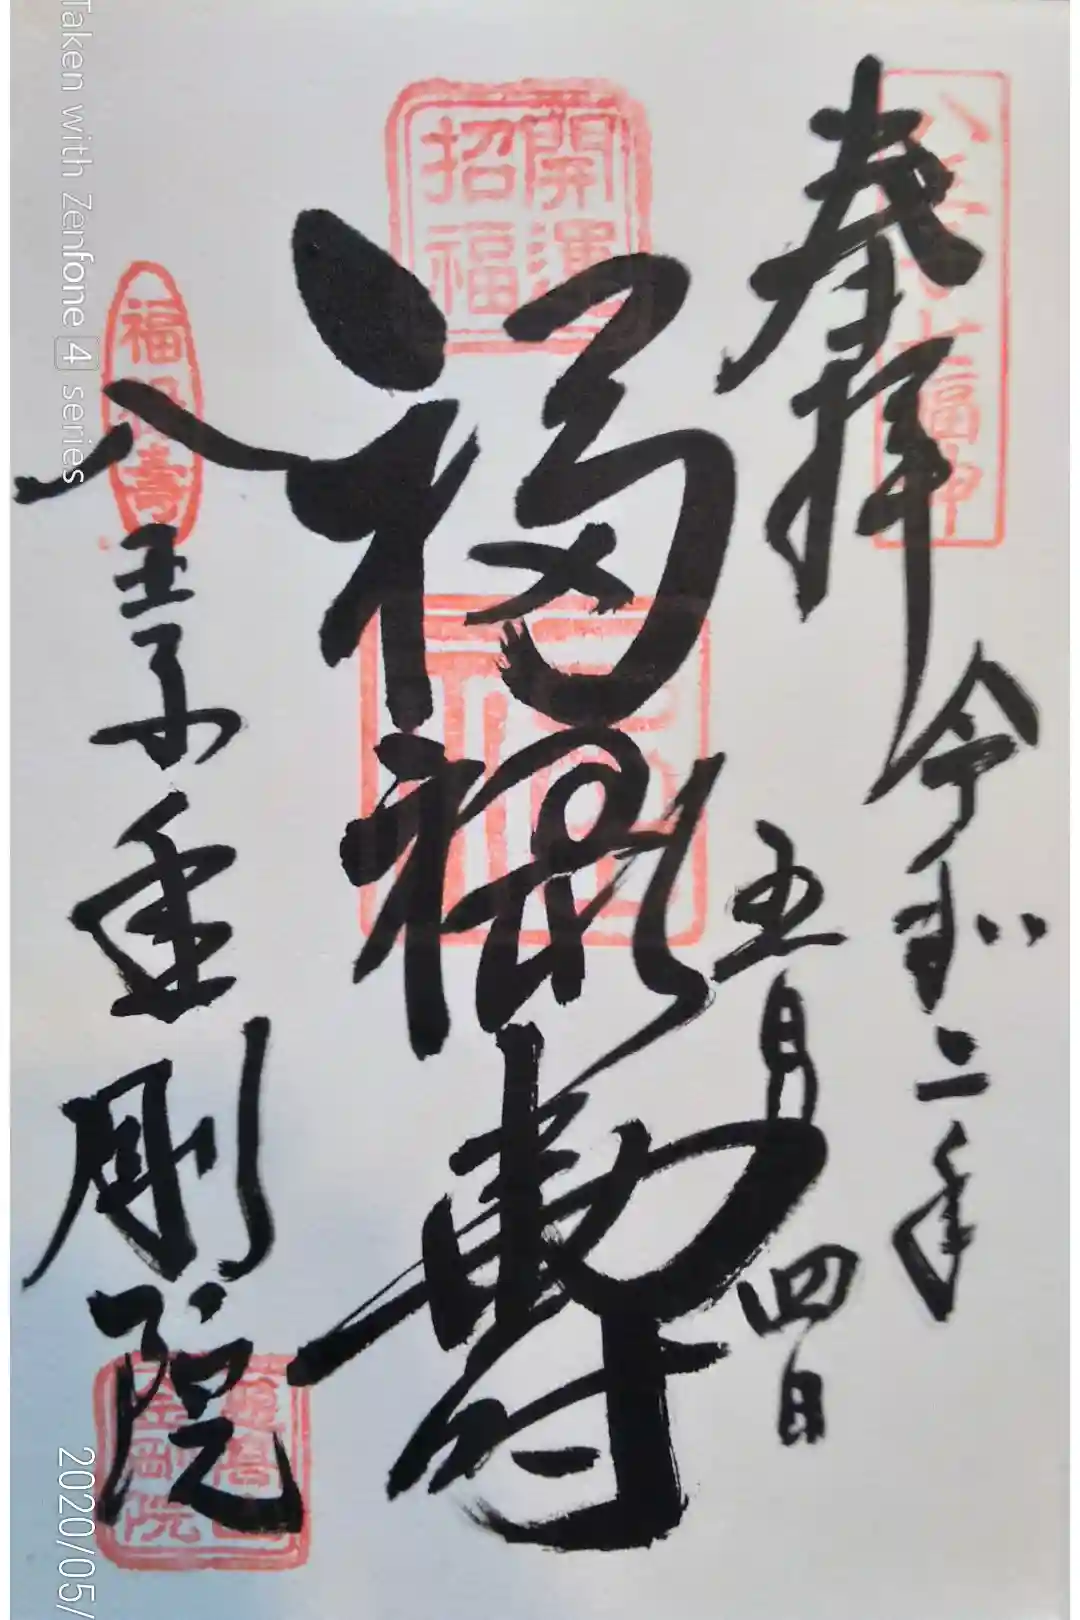 奉拝
令和二年
五月四日
福禄寿
八王子金剛院
八王子七福神
開運
招福
福禄寿
金剛院
Taken with Zenfone 4 series
2020/05/